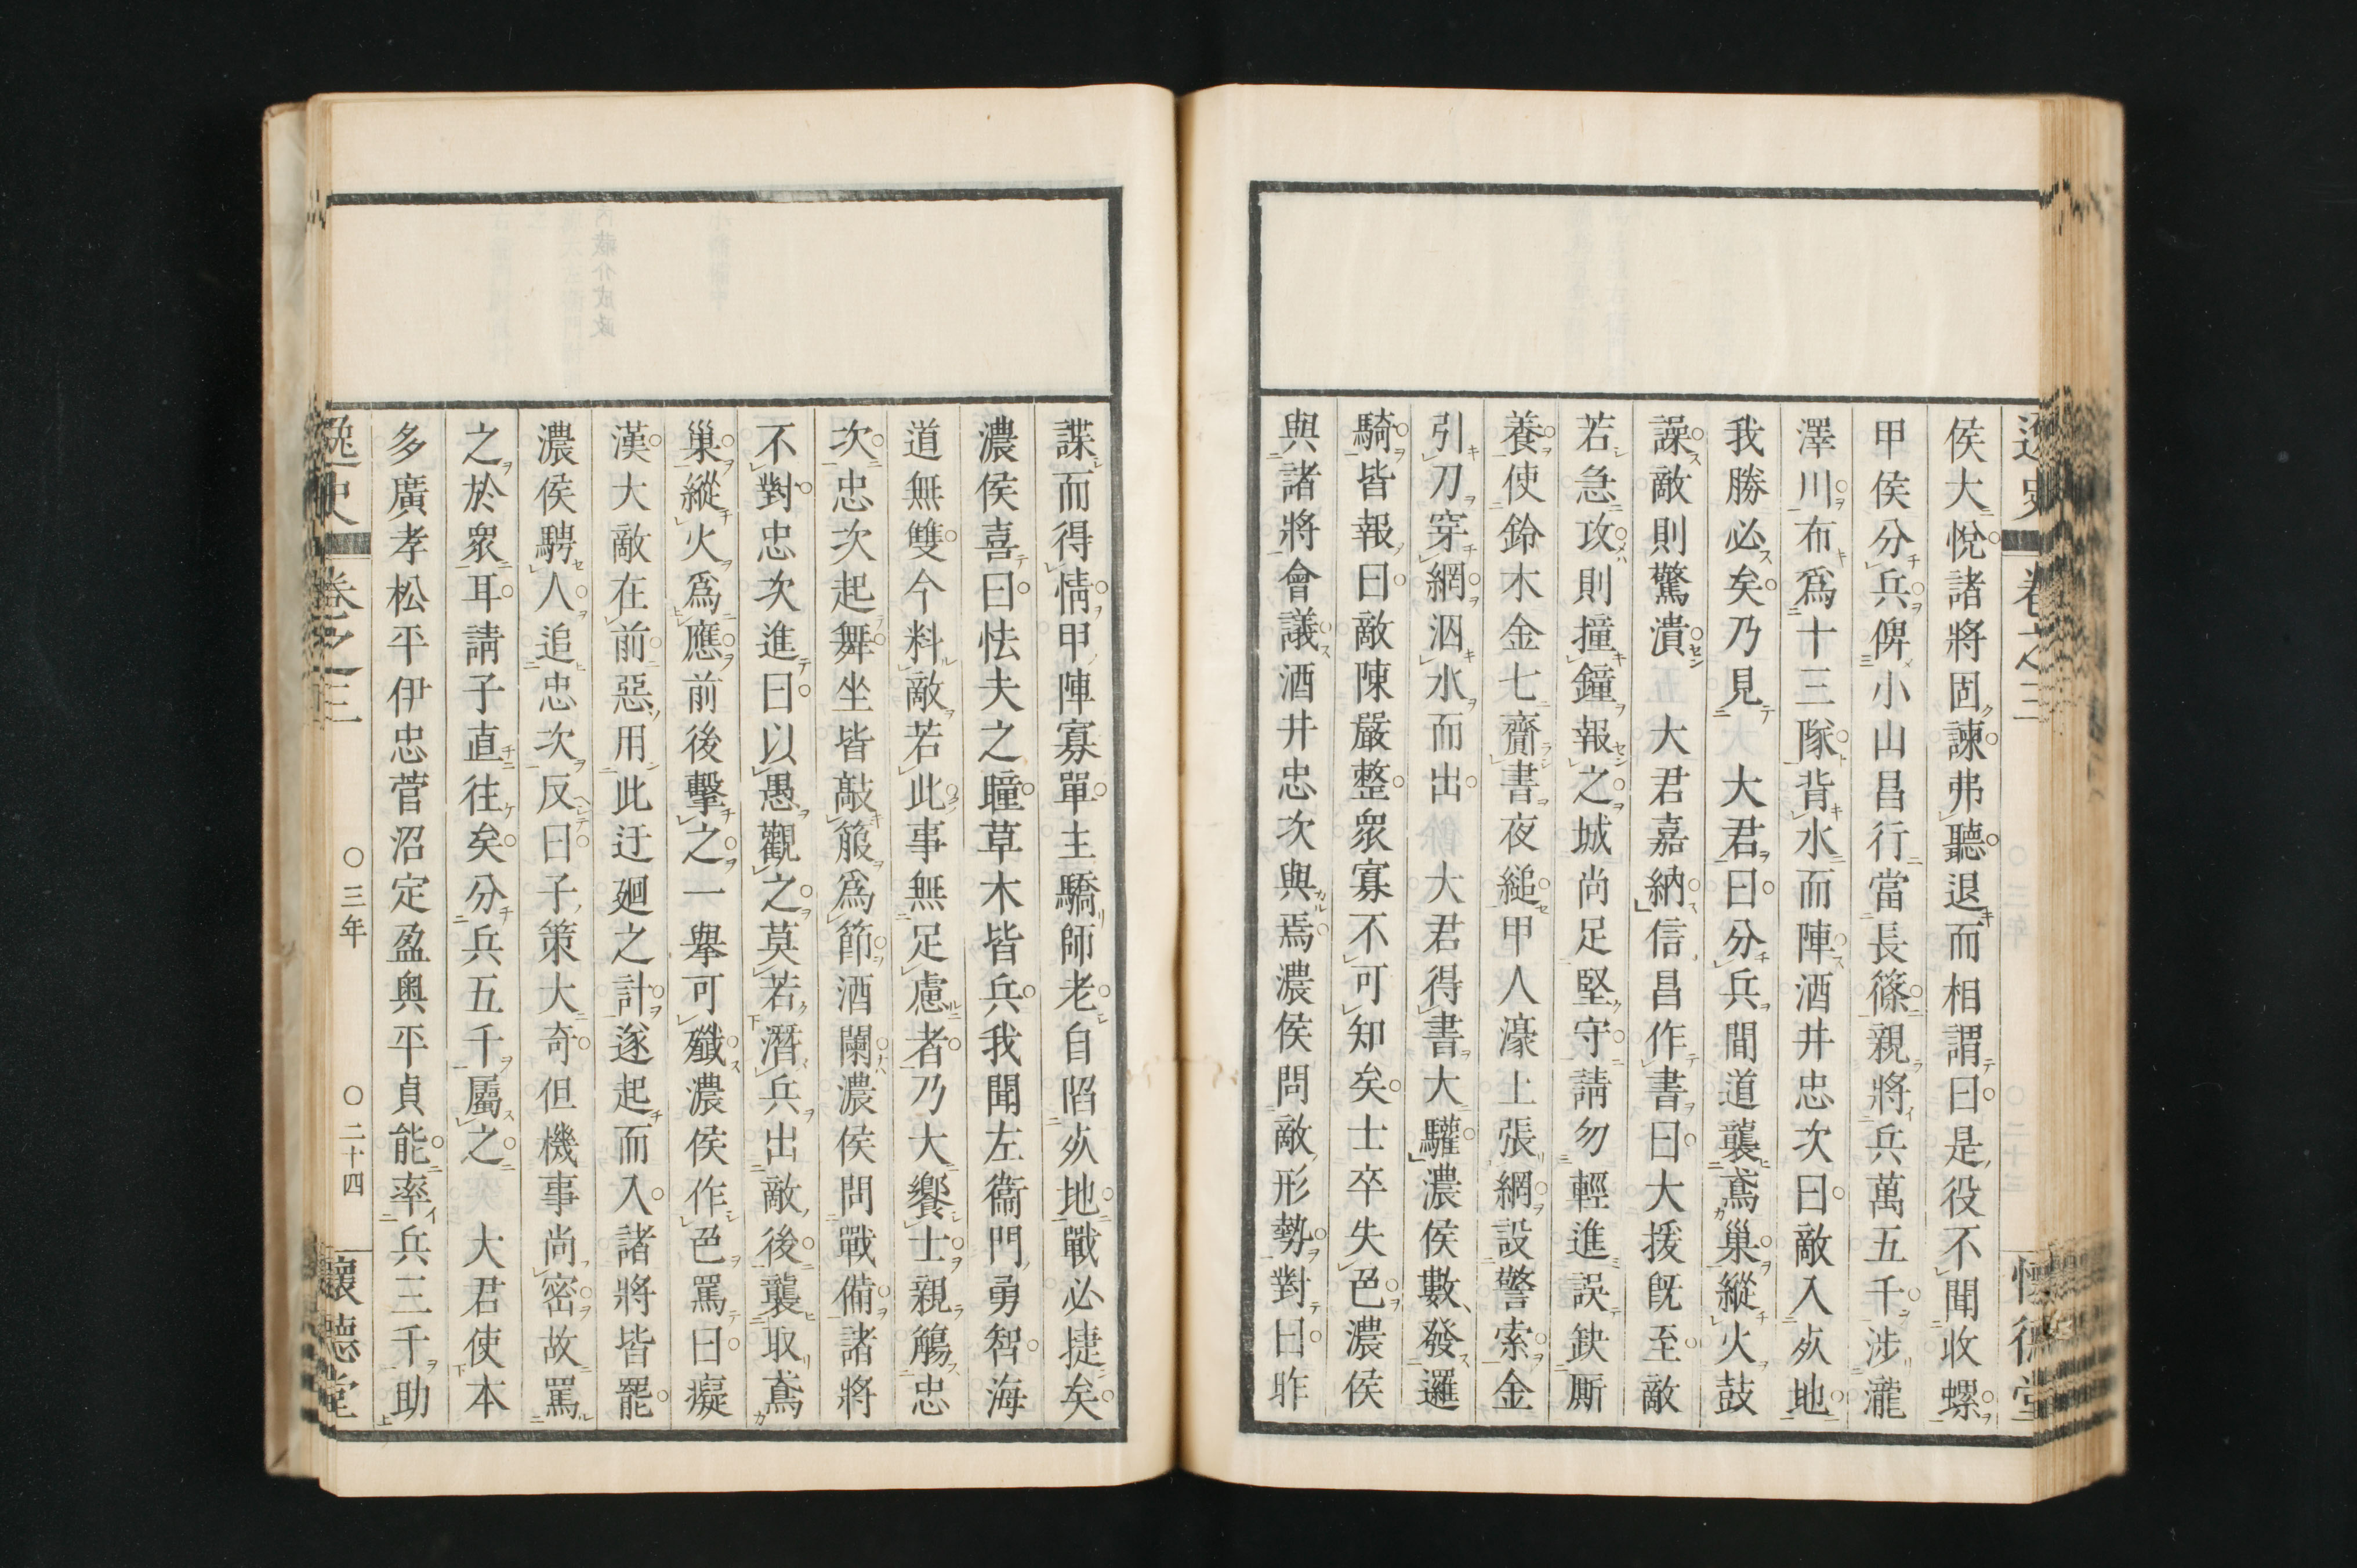 侯大悅諸將固諫弗聽退而相謂曰是役不聞收螺
甲侯分兵俾小山昌行當長篠親將兵萬五千涉瀧
澤川布爲十三隊背水而陣酒井忠次曰敵入死地
我勝必矣乃見　大君曰分兵間道襲鳶巢縱火鼓
譟敵則驚潰　大君嘉納信昌作書曰大援既至敵
若急攻則撞鐘報之城尚足堅守請勿輕進誤缺厮
養使鈴木金七齎書夜縋甲人濠上張網設警索金
引刀穿網泅水而出　大君得書大驩濃侯數發邏
騎皆報曰敵陳嚴整衆寡不可知矣士卒失色濃侯
與諸將會議酒井忠次與焉濃侯問敵形勢對曰昨
諜而得情甲陣寡單主驕師老自陷死地戰必捷矣
濃侯喜曰怯夫之瞳草木皆兵我聞左衞門勇智海
道無雙今料敵若此事無足慮者乃大饗士親觴忠
次忠次起舞坐皆敲箙爲節酒闌濃侯問戰備諸將
不對忠次進曰以愚觀之莫若潛兵出敵後襲取鳶
巢縱火爲應前後擊之一擧可殲濃侯作色罵曰癡
漢大敵在前惡用此迂廻之計遂起而入諸將皆罷
濃侯騁人追忠次反曰子策大奇但機事尚密故罵
之於衆耳請子直往矣分兵五千屬之　大君使本
多廣孝松平伊忠菅沼定盈奧平貞能率兵三千助
逸史　卷之三　〇三年　〇二十四　懷德堂